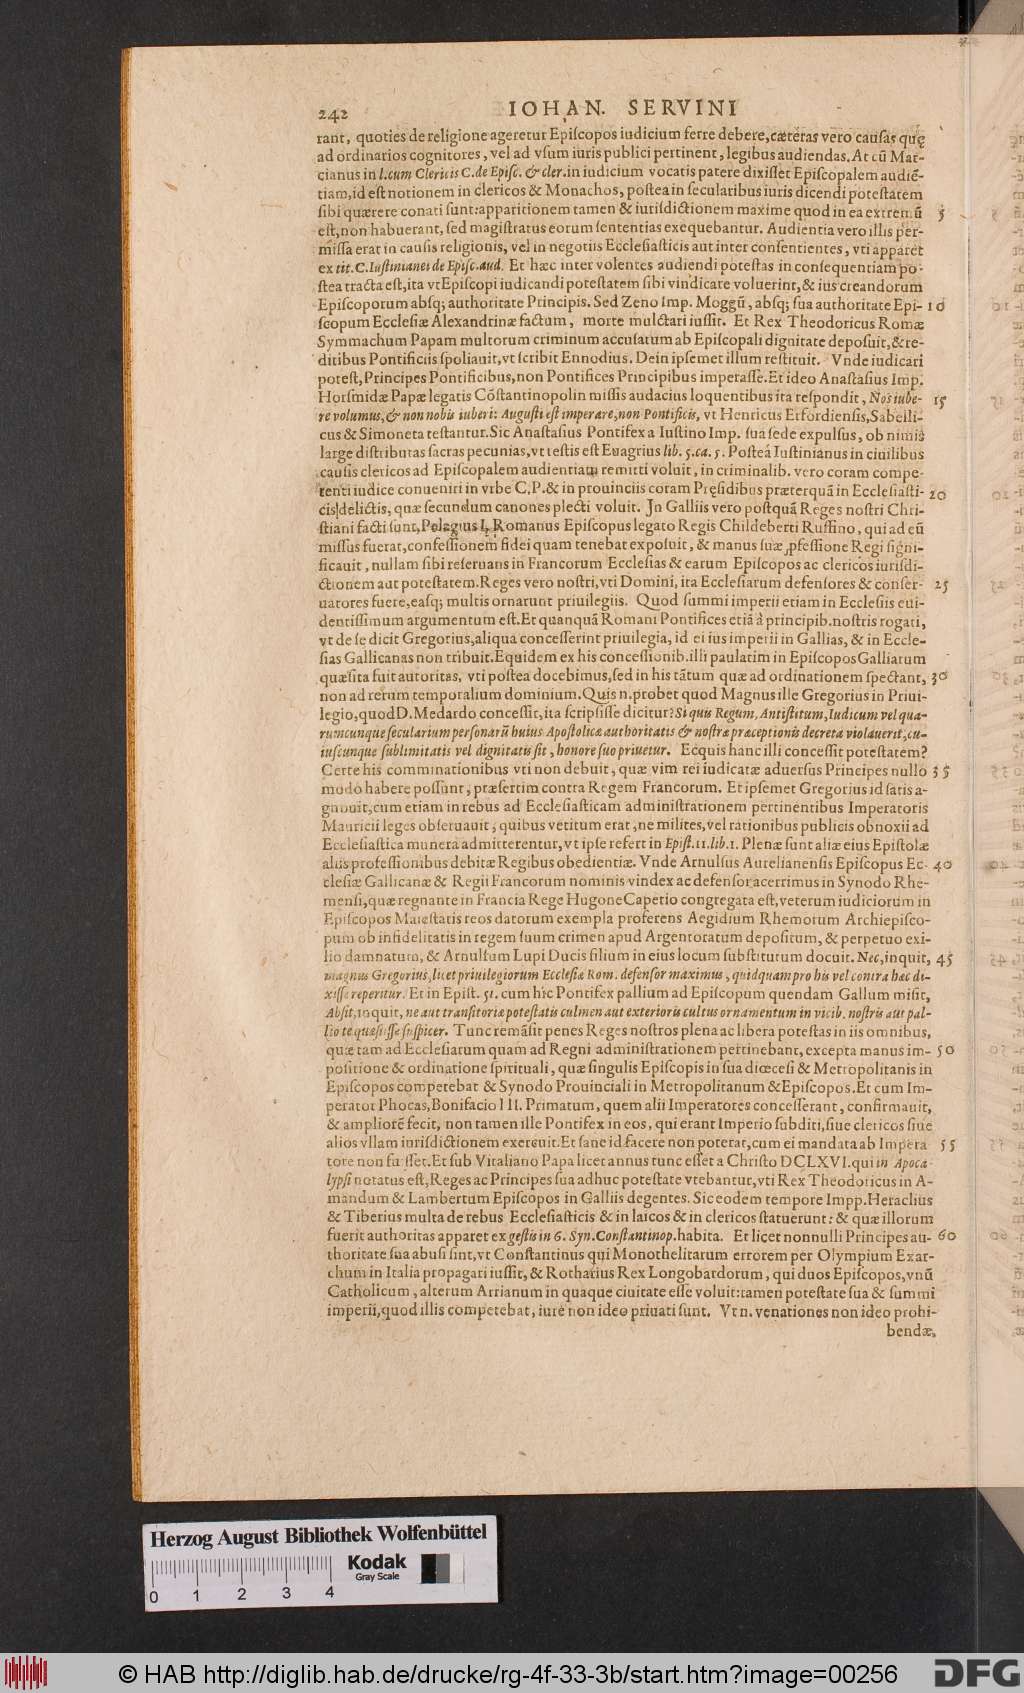 242 IOHAN. SERVINI
rant, quoties de religione ageretur Epiſcopos iudicium ferre debere, cæteras vero cauſas quę
ad ordinarios cognitores, vel ad vſum iuris publici pertinent, legibus audiendas. At cũ Mar-
cianus in l. cum Clericis C. de Epiſc. & cler. in iudicium vocatis patere dixiſſet Epiſcopalem audiẽ-
tiam, id eſt notionem in clericos & Monachos, poſtea in ſecularibus iuris dicendi poteſtatem
ſibi quærere conati ſunt: apparitionem tamen & iuriſdictionem maxime quod in ea extremũ 5
eſt, non habuerant, ſed magiſtratus eorum ſententias exequebantur. Audientia vero illis per-
miſſa erat in cauſis religionis, vel in negotiis Eccleſiaſticis aut inter conſentientes, vti apparet
ex tit. C. Iuſtinianei de Epiſc. aud. Et hæc inter volentes audiendi poteſtas in conſequentiam po-
ſtea tracta eſt, ita vt Epiſcopi iudicandi poteſtatem ſibi vindicare voluerint, & ius creandorum
Epiſcoporum abſq; authoritate Principis. Sed Zeno Imp. Moggũ, abſq; ſua authoritate Epi- 10
ſcopum Eccleſiæ Alexandrinæ factum, morte mulctari iuſſit. Et Rex Theodoricus Romæ
Symmachum Papam multorum criminum accuſatum ab Epiſcopali dignitate depoſuit, & re-
ditibus Pontificiis ſpoliauit, vt ſcribit Ennodius. Dein ipſemet illum reſtituit. Vnde iudicari
poteſt, Principes Pontificibus, non Pontifices Principibus imperaſſe. Et ideo Anaſtaſius Imp.
Horſmidæ Papæ legatis Cõſtantinopolin miſſis audacius loquentibus ita reſpondit, Nos iube- 15
re volumus, & non nobis iuberi: Auguſti eſt imperare, non Pontificis, vt Henricus Erfordienſis, Sabelli-
cus & Simoneta teſtantur. Sic Anaſtaſius Pontifex a Iuſtino Imp. ſua ſede expulſus, ob nimis
large diſtributas ſacras pecunias, vt teſtis eſt Euagrius lib. 5. ca. 5. Poſteá Iuſtinianus in ciuilibus
cauſis clericos ad Epiſcopalem audientiam remitti voluit, in criminalib. vero coram compe-
tenti iudice conueniri in vrbe C. P. & in prouinciis coram Pręſidibus præterquã in Eccleſiaſti- 20
cis delictis, quæ ſecundum canones plecti voluit. Jn Galliis vero poſtquã Reges noſtri Chri-
ſtiani facti ſunt, Pelagius I, Romanus Epiſcopus legato Regis Childeberti Ruffino, qui ad eũ
miſſus fuerat, confeſſionem fidei quam tenebat expoſuit, & manus ſuæ ꝓfeſſione Regi ſigni-
ficauit, nullam ſibi reſeruans in Francorum Eccleſias & earum Epiſcopos ac clericos iuriſdi-
ctionem aut poteſtatem. Reges vero noſtri, vti Domini, ita Eccleſiarum defenſores & conſer- 25
uatores fuere, eaſq; multis ornarunt priuilegiis. Quod ſummi imperii etiam in Eccleſiis eui-
dentiſſimum argumentum eſt. Et quanquã Romani Pontifices etiã à principib. noſtris rogati,
vt de ſe dicit Gregorius, aliqua conceſſerint priuilegia, id ei ius imperii in Gallias, & in Eccle-
ſias Gallicanas non tribuit. Equidem ex his conceſſionib. illi paulatim in Epiſcopos Galliarum
quæſita fuit autoritas, vti poſtea docebimus, ſed in his tãtum quæ ad ordinationem ſpectant, 30
non ad rerum temporalium dominium. Quis n. probet quod Magnus ille Gregorius in Priui-
legio, quod D. Medardo conceſſit, ita ſcripſiſſe dicitur? Si quis Regum, Antiſtitum, Iudicum vel qua-
rumcunque ſecularium perſonarũ huius Apoſtolicæ authoritatis & noſtræ præceptionis decreta violauerit, cu-
iuſcunque ſublimitatis vel dignitatis ſit, honore ſuo priuetur. Ecquis hanc illi conceſſit poteſtatem?
Certe his comminationibus vti non debuit, quæ vim rei iudicatæ aduerſus Principes nullo 35
modo habere poſſunt, præſertim contra Regem Francorum. Et ipſemet Gregorius id ſatis a-
gnouit, cum etiam in rebus ad Eccleſiaſticam adminiſtrationem pertinentibus Imperatoris
Mauricii leges obſeruauit, quibus vetitum erat, ne milites, vel rationibus publicis obnoxii ad
Eccleſiaſtica munera admitterentur, vt ipſe refert in Epiſt. 11. lib. 1. Plenæ ſunt aliæ eius Epiſtolæ
aliis profeſſionibus debitæ Regibus obedientiæ. Vnde Arnulſus Aurelianenſis Epiſcopus Ec- 40
cleſiæ Gallicanæ & Regii Francorum nominis vindex ac defenſor acerrimus in Synodo Rhe-
menſi, quæ regnante in Francia Rege Hugone Capetio congregata eſt, veterum iudiciorum in
Epiſcopos Maieſtatis reos datorum exempla proferens Aegidium Rhemorum Archiepiſco-
pum ob infidelitatis in regem ſuum crimen apud Argentoratum depoſitum, & perpetuo exi-
lio damnatum, & Arnulfum Lupi Ducis filium in eius locum ſubſtitutum docuit. Nec, inquit, 45
magnus Gregorius, licet priuilegiorum Eccleſiæ Rom. defenſor maximus, quidquam pro his vel contra hæc di-
xiſſe reperitur. Et in Epiſt. 51. cum hic Pontifex pallium ad Epiſcopum quendam Gallum miſit,
Abſit, inquit, ne aut tranſitoriæ poteſtatis culmen aut exterioris cultus ornamentum in vicib. noſtris aut pal-
lio te quæſiſſe ſuſpicer. Tunc remãſit penes Reges noſtros plena ac libera poteſtas in iis omnibus,
quæ tam ad Eccleſiarum quam ad Regni adminiſtrationem pertinebant, excepta manus im- 50
poſitione & ordinatione ſpirituali, quæ ſingulis Epiſcopis in ſua diœceſi & Metropolitanis in
Epiſcopos competebat & Synodo Prouinciali in Metropolitanum & Epiſcopos. Et cum Im-
perator Phocas, Bonifacio III. Primatum, quem alii Imperatores conceſſerant, confirmauit,
& ampliorẽ fecit, non tamen ille Pontifex in eos, qui erant Imperio ſubditi, ſiue clericos ſiue
alios vllam iuriſdictionem exercuit. Et ſane id facere non poterat, cum ei mandata ab Impera 55
tore non fuiſſet. Et ſub Vitaliano Papa licet annus tunc eſſet a Chriſto DCLXVI. qui in Apoca-
lypſi notatus eſt, Reges ac Principes ſua adhuc poteſtate vtebantur, vti Rex Theodoricus in A-
mandum & Lambertum Epiſcopos in Galliis degentes. Sic eodem tempore Impp. Heraclius
& Tiberius multa de rebus Eccleſiaſticis & in laicos & in clericos ſtatuerunt: & quæ illorum
fuerit authoritas apparet ex geſtis in 6. Syn. Conſtantinop. habita. Et licet nonnulli Principes au- 60
thoritate ſua abuſi ſint, vt Conſtantinus qui Monothelitarum errorem per Olympium Exar-
chum in Italia propagari iuſſit, & Rotharius Rex Longobardorum, qui duos Epiſcopos, vnũ
Catholicum, alterum Arrianum in quaque ciuitate eſſe voluit: tamen poteſtate ſua & ſummi
imperii, quod illis competebat, iure non ideo priuati ſunt. Vt n. venationes non ideo prohi-
bendæ,
Herzog August Bibliothek Wolfenbüttel
Kodak
Gray Scale
0 1 2 3 4
© HAB http://diglib.hab.de/drucke/rg-4f-33-3b/start.htm?image=00256
DFG